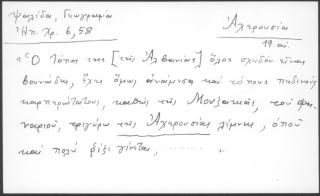 Ψαλίδα, Γεωγραφία
Ἠπ. Χρ. 6, 58
Ἀχερουσία
19 αἰ.
«Ὁ τόπος της [τῆς Ἀλβανίας] ὅλος σχεδὸν εἶναι
βουνώδης, ἔχει ὅμως ἀνάμεσα καὶ τόπους πεδινοὺς
καρπερωτάτους, καθὼς τῆς Μουζακιᾶς, τοῦ Φα-
ναριοῦ, τριγύρω τῆς Ἀχερουσίας λίμνης, ὁποῦ
καὶ πολὺ ρίζι γίνεται, ........ »